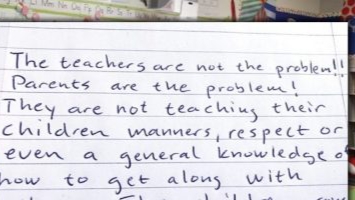 The teachers are not the problem!!
Parents are the problem!
They are not teaching their
children manners, respect or
even a general knowledge of
how to get along with